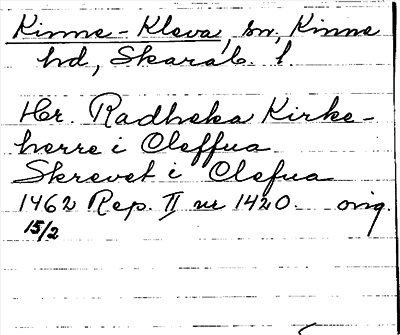 Kinne-Kleva, sn, Kinne
hd, Skarab. l.
Hr. Radheka Kirke-
herre i Cleffua
Skrevet i Clefua
1462 Rep. II nr 1420. orig.
15/2